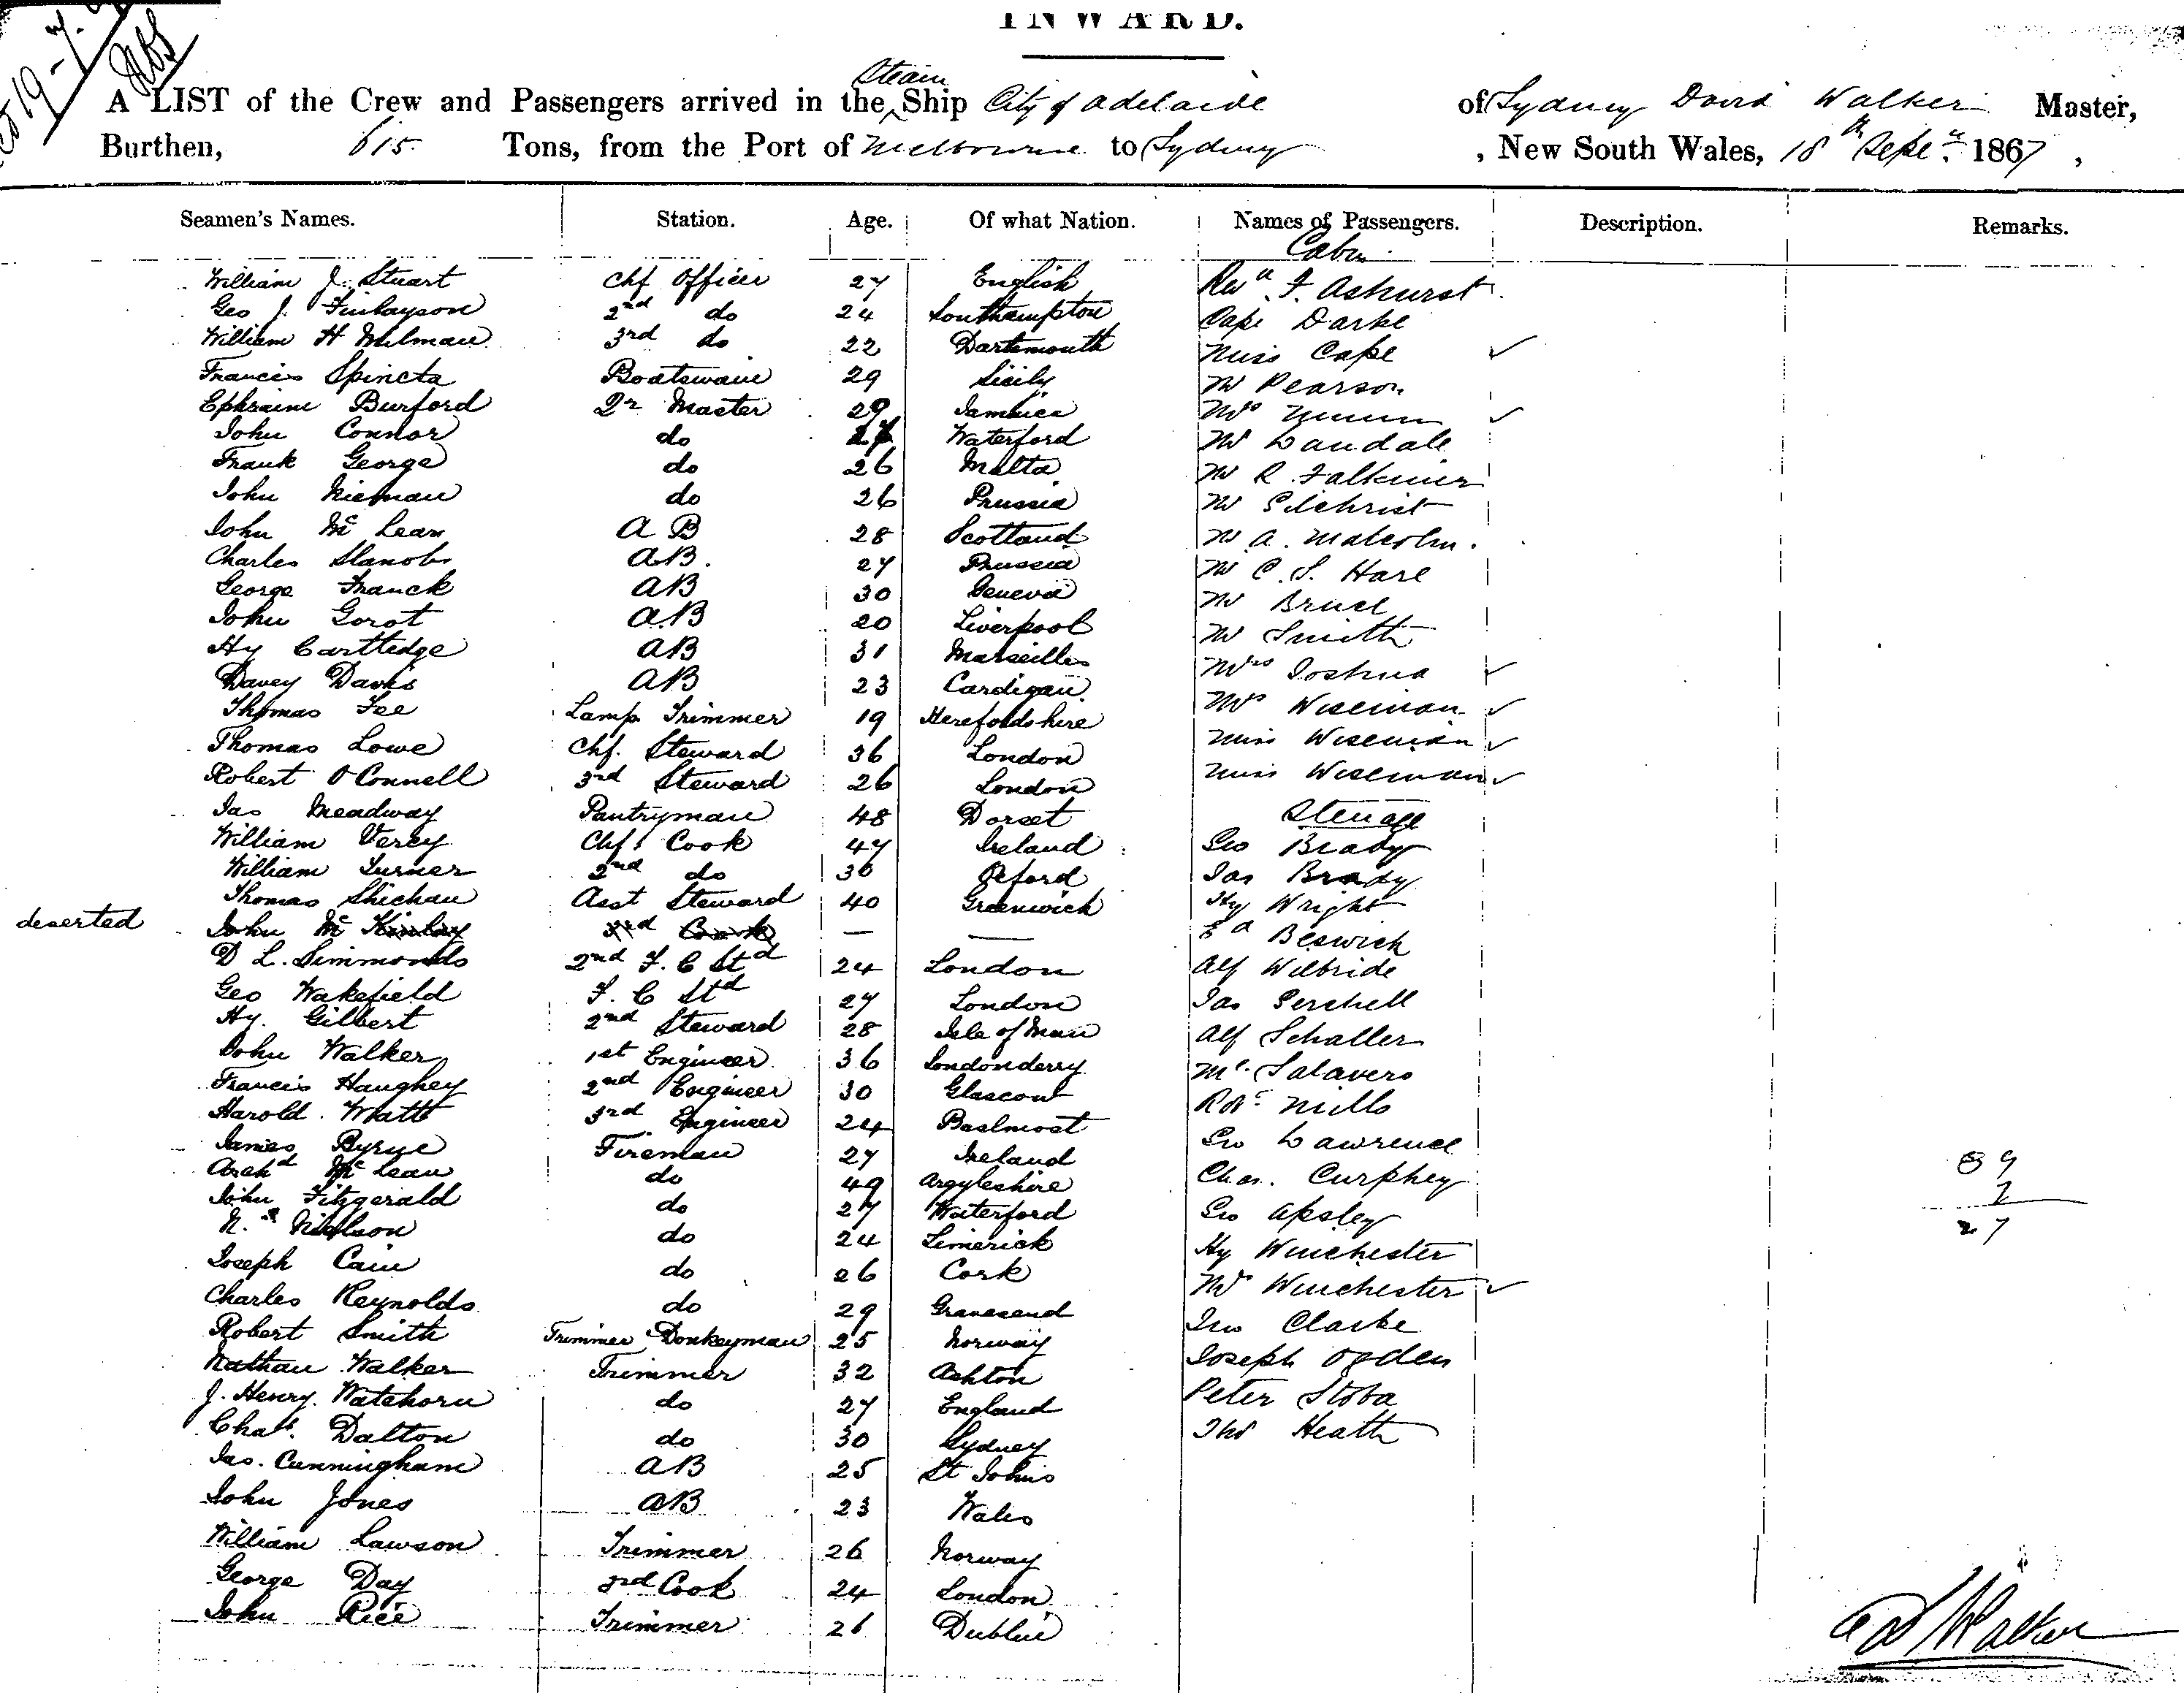 INWARD.
A LIST of the Crew and Passengers arrived in the Steam Ship City of Adelaide of Sydney David Walker Master,
Burthen, 615 Tons, from the Port of Melbourne to Sydney, New South Wales, 18th Septr. 1867,
Seamen's Names. Station. Age. Of what Nation. Names of Passengers. Description. Remarks.
Cabin
William J. Stuart Chf Officer 27 English Revd. F. Ashurst
Geo J. Finlayson 2nd do 24 Southampton Capt Darke
William H Milman 3rd do 22 Dartmouth Miss Cape ✓
Francis Spincta Boatswain 29 Sicily Mr Pearson
Ephraim Burford Qr Master 29 Jamaica Mrs ✓
John Connor do 27 Waterford Mr Landale
Frank George do 26 Malta Mr R. Falkiner
John Nieman do 26 Prussia Mr Gilchrist
John McLean A B 28 Scotland Mr A. Malcolm.
Charles AB. 27 Prussia Mr C. S. Hare
George Franck AB 30 Geneva Mr Bruce
John Gorot AB 20 Liverpool Mr Smith
Hy Carttedge AB 31 Marseilles Mrs Joshua ✓
Davey Davis AB 23 Cardigan Mrs Wiseman ✓
Thomas Fee Lamp Trimmer 19 Herefordshire Miss Wiseman ✓
Thomas Lowe Chf. Steward 36 London Miss Wiseman ✓
Robert O Connell 3rd Steward 26 London
Jas Meadway Pantryman 48 Dorset Steerage
William Verey Chf Cook 47 Ireland Geo Brady
William Turner 2nd do 30 Oxford Jas Brady
Thomas Shichan Asst Steward 40 Greenwich Hy Wright
deserted John McKinlay 3rd Cook — — Ed Beswick
D L. Simmonds 2nd F. C Std 24 London Alf Wilbride
Geo Wakefield F. C Std 27 London Jas
Hy. Gilbert 2nd Steward 28 Isle of Man Alf Schaller
John Walker 1st Engineer 36 Londonderry Salavero
Francis Haughey 2nd Engineer 30 Glascow Robt Mills
Harold Watt 3rd Engineer 24 Geo Lawrence
James Byrne Fireman 27 Ireland Chas. Curphey
Archd McLean do 49 Argyleshire Geo Apsley
John Fitzgerald do 27 Waterford Hy Winchester
N. Nielson do 24 Limerick Mrs Winchester ✓
Joseph Cain do 26 Cork Jno Clarke
Charles Reynolds do 29 Gravesend Joseph Ogden
Robert Smith Trimmer Donkeyman 25 Norway Peter Stoba
Nathan Walker Trimmer 32 Ashton Thos Heath
J. Henry Watehorn do 27 England
Chas. Dalton do 30 Sydney
Jas. Cunningham AB 25 St Johns
John Jones AB 23 Wales
William Lawson Trimmer 26 Norway
George Day 3rd Cook 24 London
John Rice Trimmer 26 Dublin
27
Walker